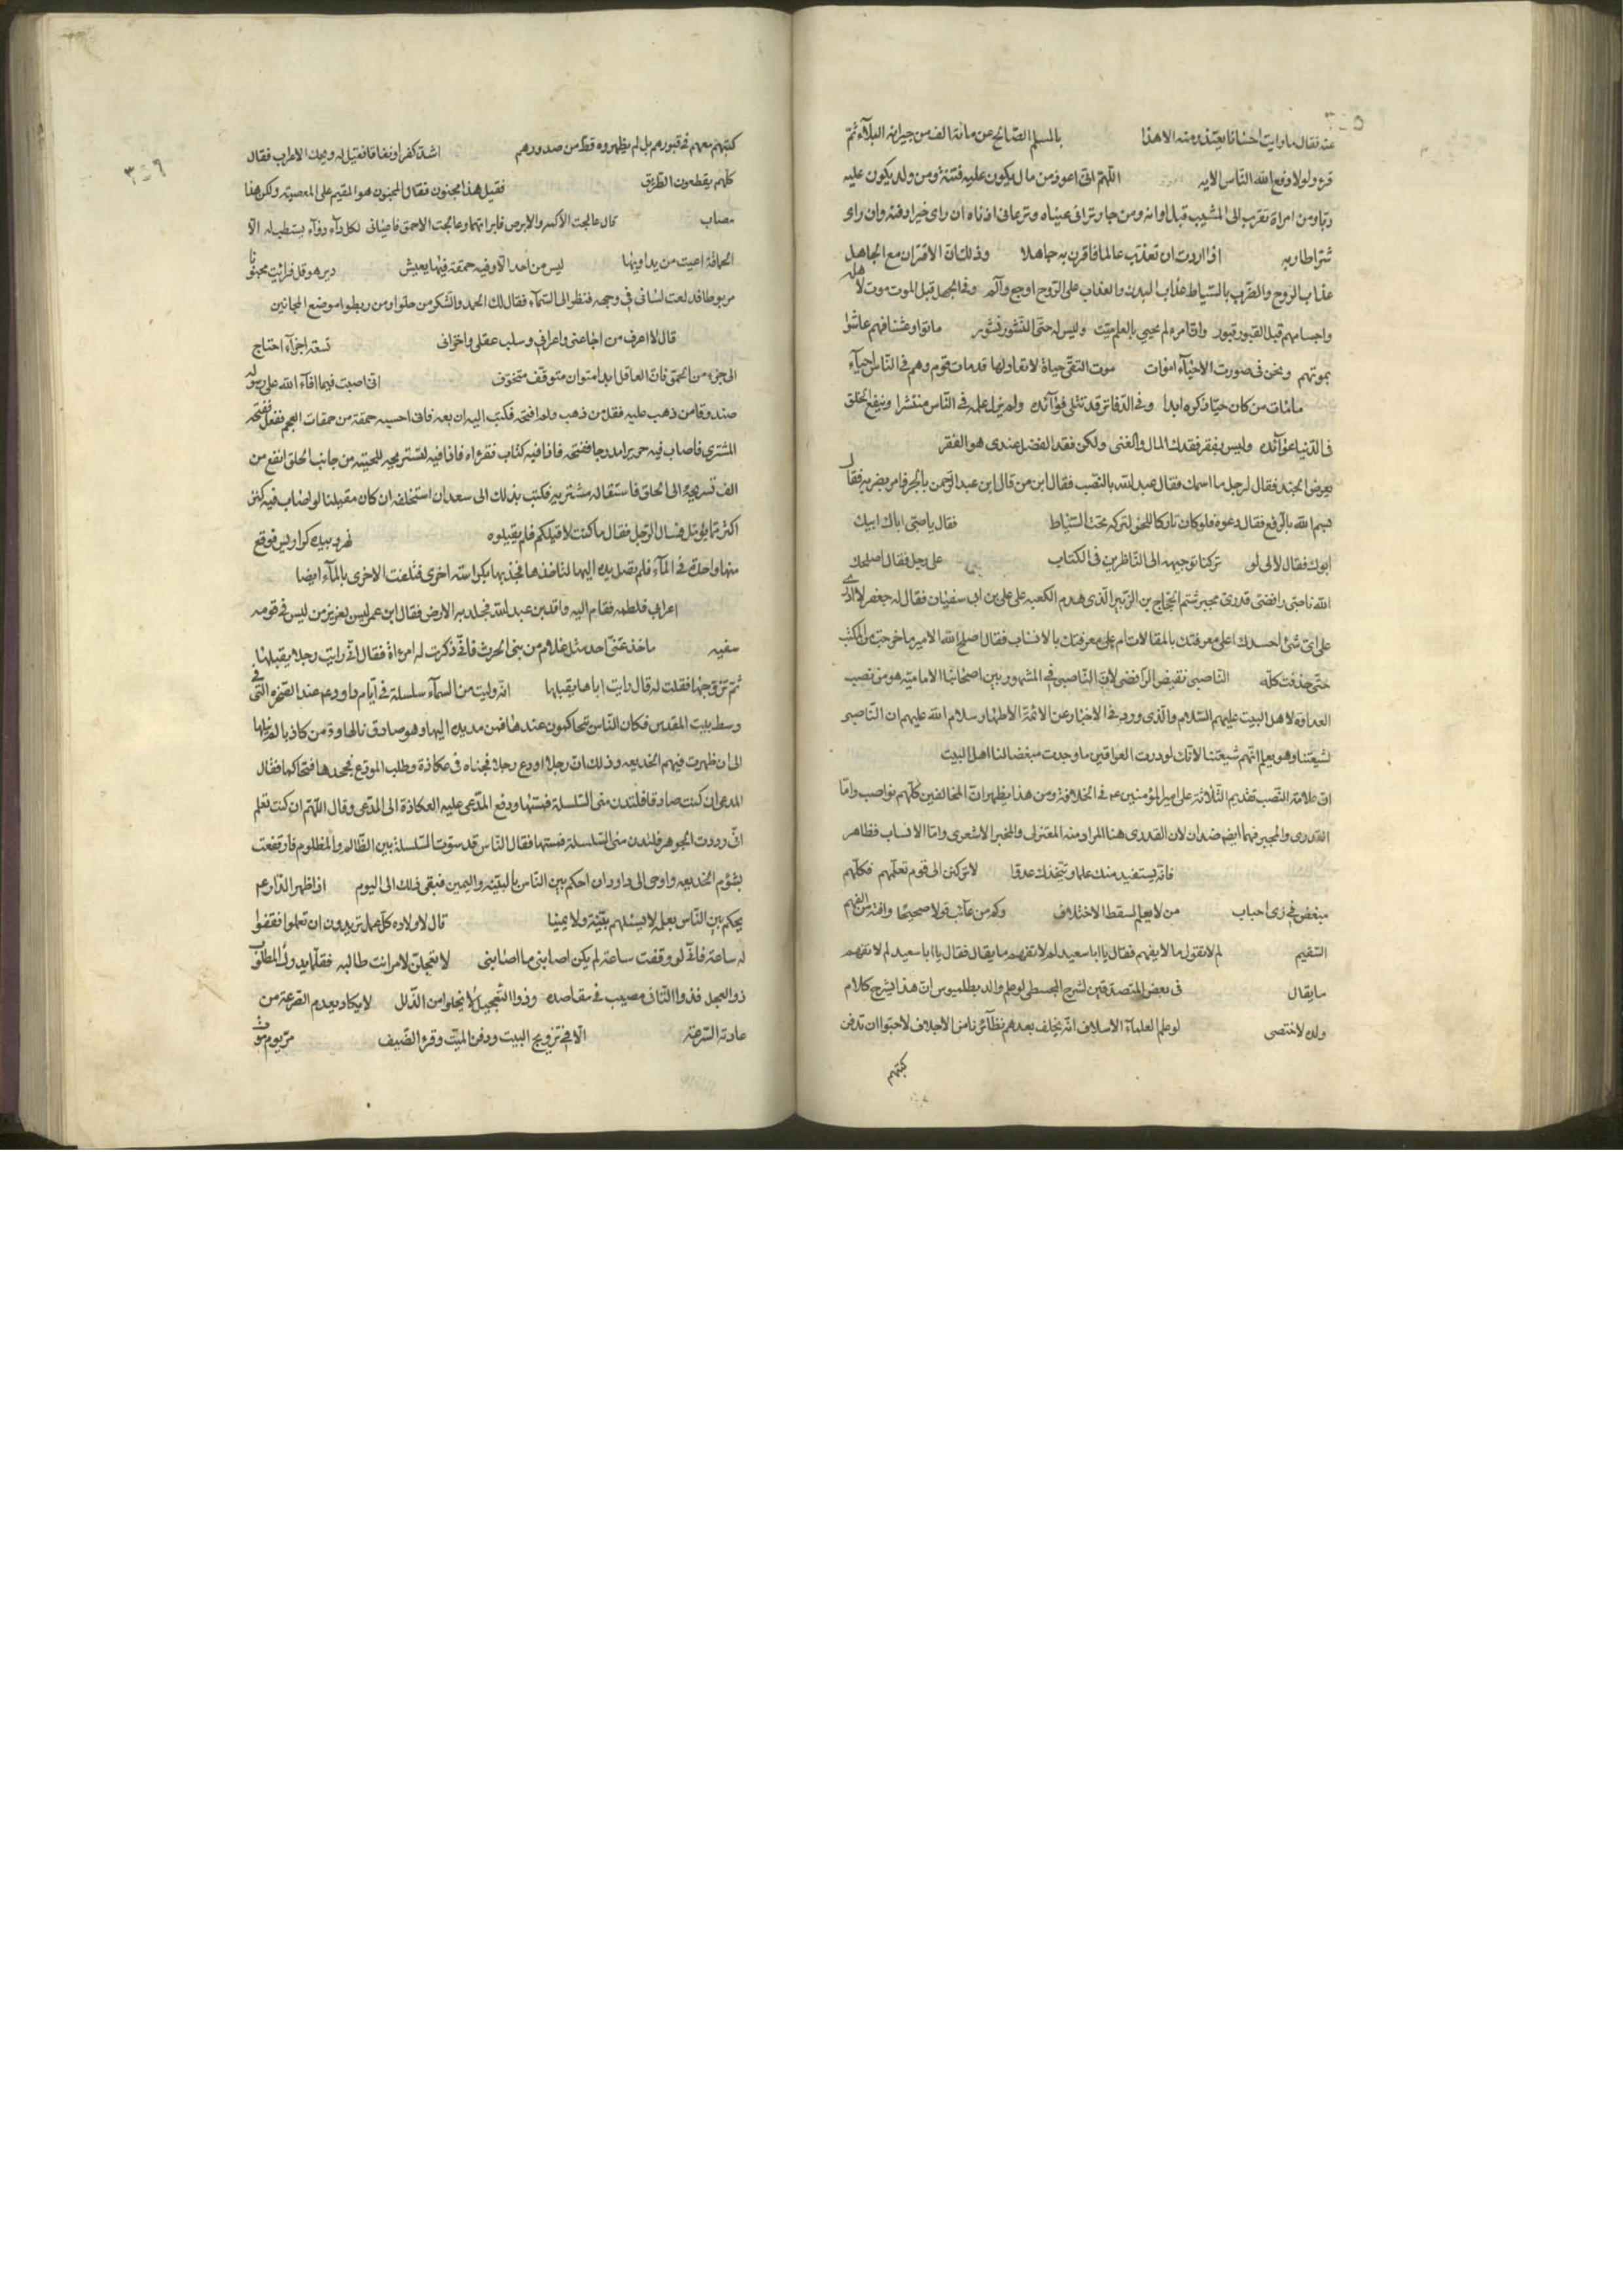 عنه فقال ما رايت احسانا يعتذر منه الا هذا بالمسلم الصالح عن مائة الف من جيرانه البلاء ثم
قرء ولولا دفع الله الناس الايه اللهم اني اعوذ من مال يكون عليه فتنة ومن ولد يكون عليه
ربا ومن امراة تقرب الى المشيب قبل اوانه ومن جار تراني عيناه وترعاني اذناه ان راى خيرا دفنه وان راى
شرا طار به اذا اردت ان تعذب عالما فاقرن به جاهلا وذلك ان الاقتران مع الجاهل
عذاب الروح والضرب بالسياط عذاب البدن والعذاب على الروح اوجع وآلم وفي الجهل قبل الموت موت لاهله
واجسامهم قبل القبور قبور وان امرء لم يحيي بالعلم ميت وليس له حتى النشور نشور ماتوا وعشنا فهم عاشوا
بموتهم ونحن في صورت الاحياء اموات موت التقي حياة لا نفاد لها قد مات قوم وهم في الناس احياء
ما مات من كان حيا ذكره ابدا وفي الدفاتر قد تتلى فوآئده ولم يزل علمه في الناس منتشرا وينفع الخلق
في الدنيا عوآئده وليس بفقر فقدك المال والغنى ولكن فقد الفضل عندى هو الفقر
يعرض الجند فقال لرجل ما اسمك فقال عبد الله بالنصب فقال ابن من قال ابن عبد الرحمن بالجر فامر بضربه فقال
بسم الله بالرفع فقال دعوه فلو كان تاركا للحن لتركه تحت السياط فقال يا صبي اباك ابيك
ابوك فقال لا لي لو تركنا توجيهه الى الناظرين في الكتاب على رجل فقال اصلحك
الله ناصبي رافضي قدري مجبر شتم الحجاج بن الزبير الذى هدم الكعبه على علي بن ابى سفيان فقال له جعفر لا ادري
على اى شئ احسدك اعلى معرفتك بالمقالات ام على معرفتك بالانساب فقال اصلح الله الامير ما خرجت من المكتب
حتى حذقت كله الناصبي نقيض الرافضي لان الناصبي في المشهور بين اصحابنا الاماميه هو من نصب
العداوة لاهل البيت عليهم السلام والذى ورد في الاخبار عن الائمة الاطهار سلام الله عليهم ان الناصبي
لشيعتنا وهو يعلم انهم شيعتنا لانك لو درت العراقين ما وجدت مبغضا لنا اهل البيت
ان علامة النصب تقديم الثلاثة على امير المؤمنين ع في الخلافة ومن هذا يظهر ان المخالفين كلهم نواصب واما
القدرى والمجبر فهما ايض ضدان لان القدرى هنا المراد منه المعتزلى والمجبر الاشعرى واما الانساب فظاهر
فانه يستفيد منك علما ويتخذك عدوا لا تركنن الى قوم تعلمهم فكلهم
مبغض في زى احباب من لا يعلم لسقط الاختلاف وكم من عآئب قولا صحيحا وافته من الفهم
السقيم لم لا تقول ما لا يفهم فقال يا ابا سعيد لم لا تفهم ما يقال فقال يا ابا سعيد لم لا تفهم
ما يقال في بعض المتصدقين لشرح المجسطى لو علم والد بطلميوس ان هذا يشرح كلام
ولده لاختصى لو علم العلماء الاسلاف انه يخلف بعدهم نظآئرنا من الاجلاف لاحبوا ان تدفن
كتبهم
كتبهم معهم في قبورهم بل لم يظهروه قط من صدورهم اشد كفرا ونفاقا فقيل له ويحك الاعراب فقال
كلهم يقطعون الطريق فقيل هذا مجنون فقال المجنون هو المقيم على المعصيه ولكن هذا
مصاب قال عالجت الاكمه والابرص فابراتهما وعالجت الاحمق فاعيانى لكل دآء دوآء يستطب به الا
الحماقة اعيت من يداويها ليس من احد الا وفيه حمقة فيها يعيش دير هرقل فرايت مجنونا
مربوطا فدلعت لسانى في وجهه فنظر الى السمآء فقال لك الحمد والشكر من حلوا ومن ربطوا موضع المجانين
قال لا اعرف من اجاعنى واعرانى وسلب عقلى واخزانى تسعة اجزآء احتاج
الى جزء من الحمق فان العاقل ابدا متوان متوقف متخوف انى اصبت فيما افآء الله على رسوله
صندوقا من ذهب عليه قفل من ذهب ولم افتحه فكتب اليه ان بعه فانى احسبه حمقة من حمقات العجم ففعل ففتحه
المشترى فاصاب فيه حريرا مدرجا ففتحه فاذا فيه كتاب فقرؤاه فاذا فيه لتسريحه للحيته من جانب الحلق انفع من
الف تسريحة الى الحلق فاستقاله مشتريه فكتب بذلك الى سعد ان استحلفه ان كان مقيلنا لو اصاب فيه كنز
اكثر مما يؤمل فسال الرجل فقال ما كنت لاقيلكم فلم يقيلوه نهر وبيده كراريس فوقع
منها واحدة في المآء فلم تصل يده اليها لتاخذها فجذبها بكراسة اخرى فتلفت الاخرى بالمآء ايضا
اعرابى فلطمه فقام اليه واقد بن عبد الله فجلد به الارض فقال ابن عمر ليس بعزيز من ليس في قومه
سفيه ما خدعنى احد مثل غلام من بنى الحرث فانى ذكرت له امرءاة فقال انى رايت رجلا يقبلها
ثم تزوجها فقلت له قال رايت اباها يقبلها انه دليت من السمآء سلسلة في ايام داود ع م عند الصخره التى في
وسط بيت المقدس فكان الناس يتحاكمون عندها فمن مد يده اليها وهو صادق نالها ومن كان كاذبا لم ينلها
الى ان ظهرت فيهم الخديعه وذلك ان رجلا اودع رجلا فجناه في عكازة وطلب المودع فجحدها فتحاكما فقال
المدعى ان كنت صادقا فلتدن منى السلسلة فمستها ودفع المدعى عليه العكازة الى المدعى وقال اللهم ان كنت تعلم
انى رددت الجوهر فلتدن منى السلسلة فمستها فقال الناس قد سوت السلسلة بين الظالم والمظلوم فارتفعت
بشؤم الخديعه واوحى الى داود ان احكم بين الناس بالبينة واليمين فبقى ذلك الى اليوم اذا ظهر القآئم ع
يحكم بين الناس بعلمه لا يسئلهم بينة ولا يمينا قال لاولاده كل عمل تريدون ان تعملوا فقفوا
له ساعة فانى لو وقفت ساعة لم يكن اصابنى ما اصابنى لا تعجلن لامر انت طالبه فقلما يدرك المطلوب
ذو العجل فذو التانى مصيب في مقاصده وذو التعجيل لا يخلوا من الزلل لا يكاد يعدم الصرعة من
عادته السرعة الا في تزويج البنت ودفن الميت وقرء الضيف مر يوم